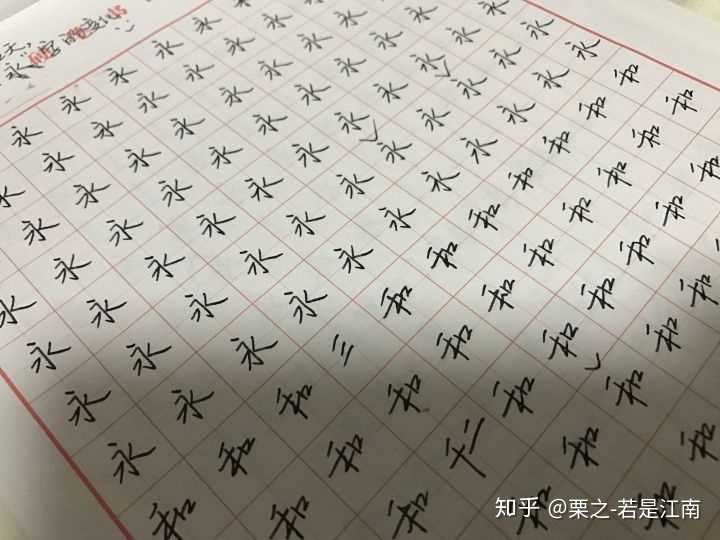 永
永永永永永永
永永永永永永永
永永永永永永永永
永永永永永永永永永永
永永永永永永永永永永永
永永永永永永永永永永永
永永永永永永永永永永永
和和和三和和和和和和和
和和和和和和和和和和
和和和和和和和
和和和和和
和和
知乎 @栗之-若是江南